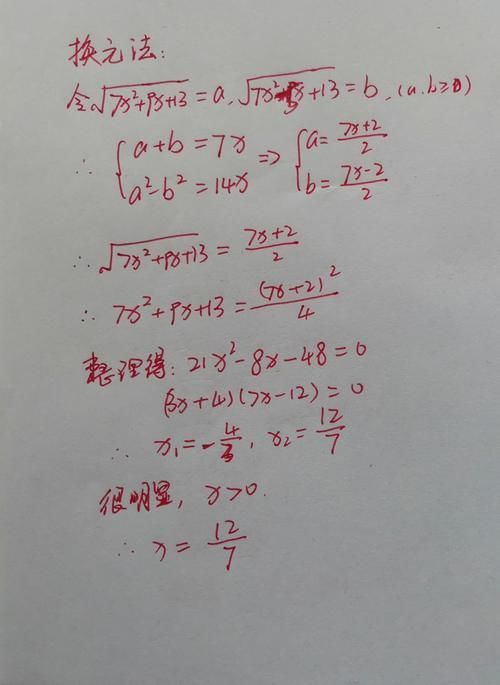 换元法:
令√(7x²+9x+13) = a, √(7x²-5x+13) = b, (a,b≥0)
∴ { a+b=7x  a²-b²=14x ⇒ { a=(7x+2)/2  b=(7x-2)/2
∴ √(7x²+9x+13) = (7x+2)/2
∴ 7x²+9x+13 = (7x+2)²/4
整理得: 21x²-8x-48=0
(3x+4)(7x-12)=0
∴ x₁=-4/3, x₂=12/7
很明显, x>0.
∴ x = 12/7